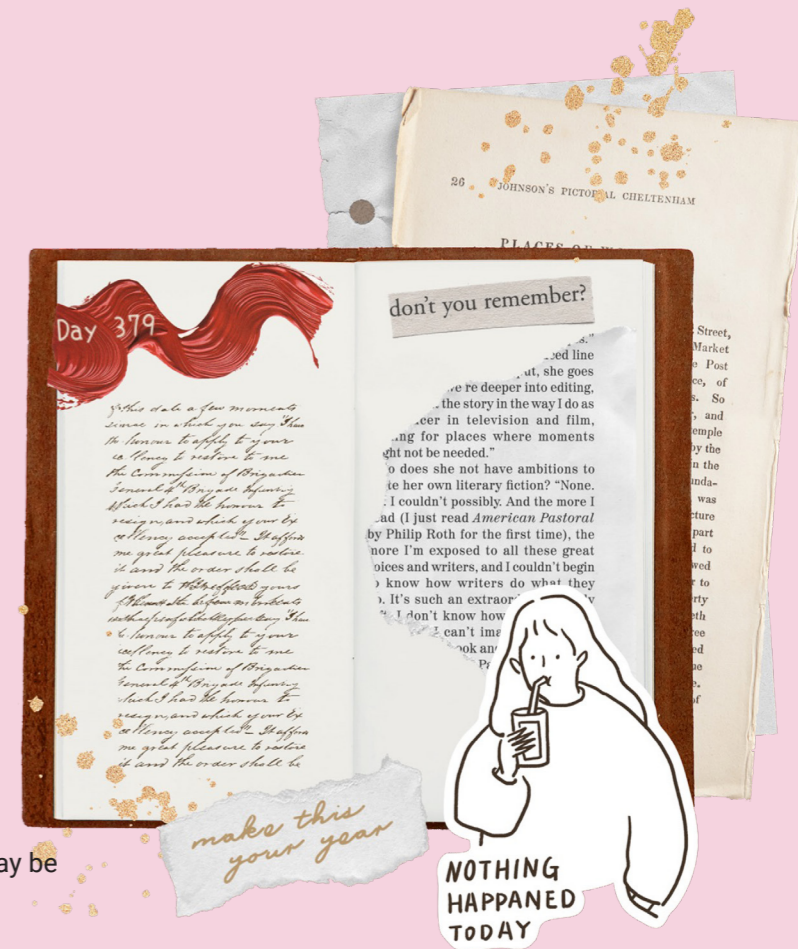 26 JOHNSON'S PICTORIAL CHELTENHAM
PLACES OF
Street,
Market
Post
of
So
and
by the
in the
was
part
to
to
of
Day 379
of this date a few moments
in which you say I have
the honour to apply to your
to restore to me
the Commission of Brigadier
General 4th Brigade Infantry
which I had the honour to
resign, and which your Ex
accepted - It affords
me great pleasure to restore
it and the order shall be
given to
the honour to apply to your
to restore to me
the Commission of Brigadier
General 4th Brigade Infantry
which I had the honour to
resign, and which your Ex
accepted - It affords
me great pleasure to restore
it and the order shall be
don't you remember?
line
she goes
deeper into editing,
the story in the way I do as
in television and film,
for places where moments
not be needed."
does she not have ambitions to
her own literary fiction? "None.
I couldn't possibly. And the more I
(I just read American Pastoral
by Philip Roth for the first time), the
more I'm exposed to all these great
voices and writers, and I couldn't begin
know how writers do what they
It's such an
I don't know how
I can't
make this
your year
NOTHING
HAPPANED
TODAY
ay be